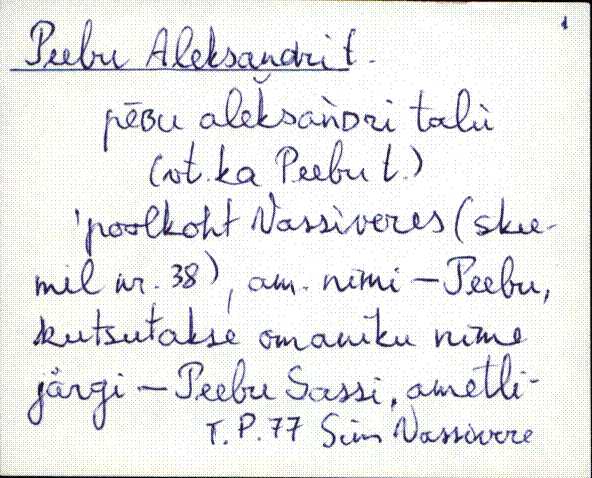 1
Peebu Aleksandri t.
pēʙu aleǩsaǹᴅri talu
(vt. ka Peebu t.)
'poolkoht Vassiveres (skee-
mil nr. 38), am. nimi – Peebu,
kutsutakse omaniku nime
järgi – Peebu Sassi, ametli-
T. P. 77 Sim Vassivere